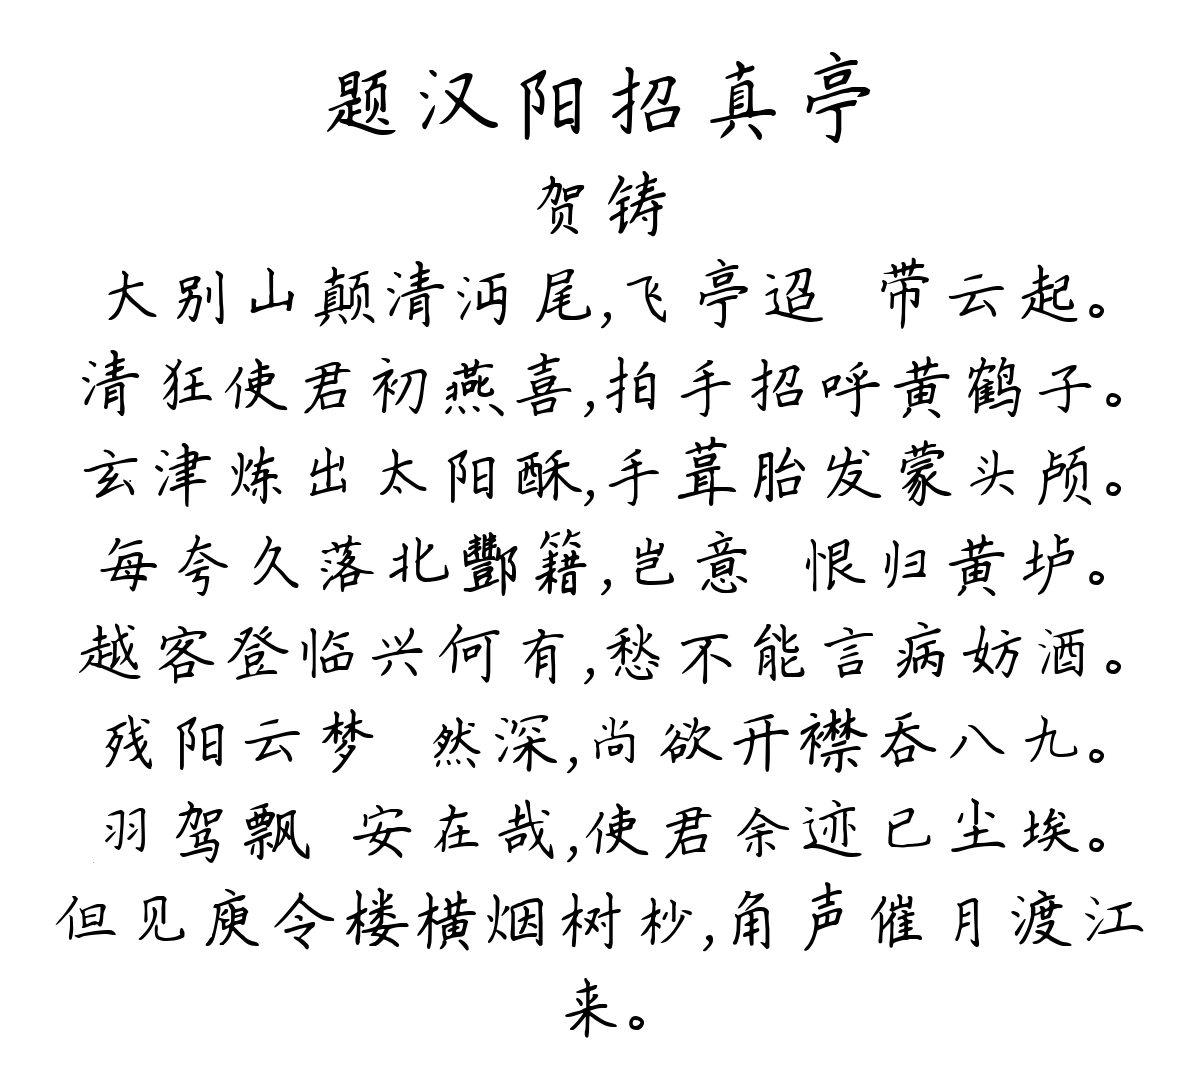 题汉阳招真亭
贺铸
大别山颠清沔尾,飞亭迢 带云起。
清狂使君初燕喜,拍手招呼黄鹤子。
玄津炼出太阳酥,手葺胎发蒙头颅。
每夸久落北酆籍,岂意 恨归黄垆。
越客登临兴何有,愁不能言病妨酒。
残阳云梦 然深,尚欲开襟吞八九。
羽驾飘 安在哉,使君余迹已尘埃。
但见庾令楼横烟树杪,角声催月渡江
来。